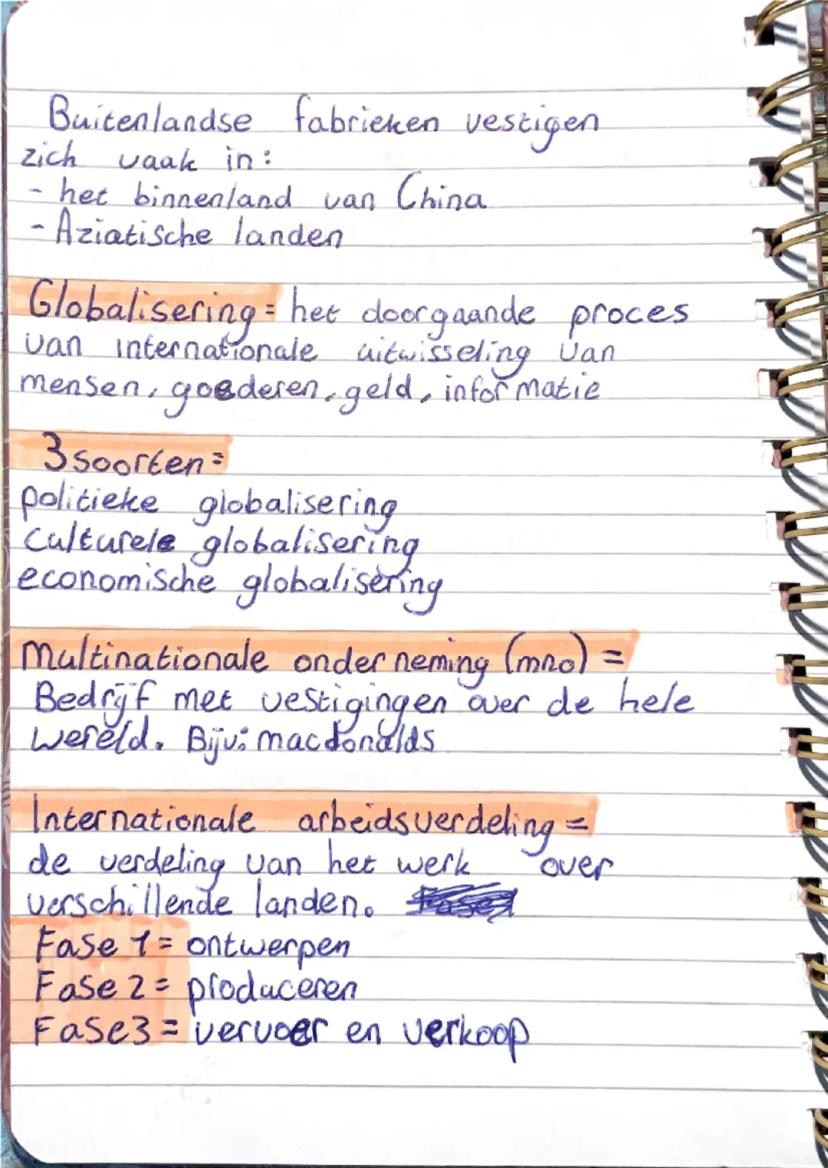 Buitenlandse fabrieken vestigen
zich vaak in:
- het binnenland van China
- Aziatische landen
Globalisering = het doorgaande proces
van internationale uitwisseling van
mensen, goederen, geld, informatie
3 soorten =
politieke globalisering
culturele globalisering
economische globalisering
Multinationale onderneming (mno) =
Bedrijf met vestigingen over de hele
wereld. Bijv: macdonalds
Internationale arbeidsverdeling =
de verdeling van het werk over
verschillende landen.
Fase 1 = ontwerpen
Fase 2 = produceren
Fase3 = vervoer en verkoop